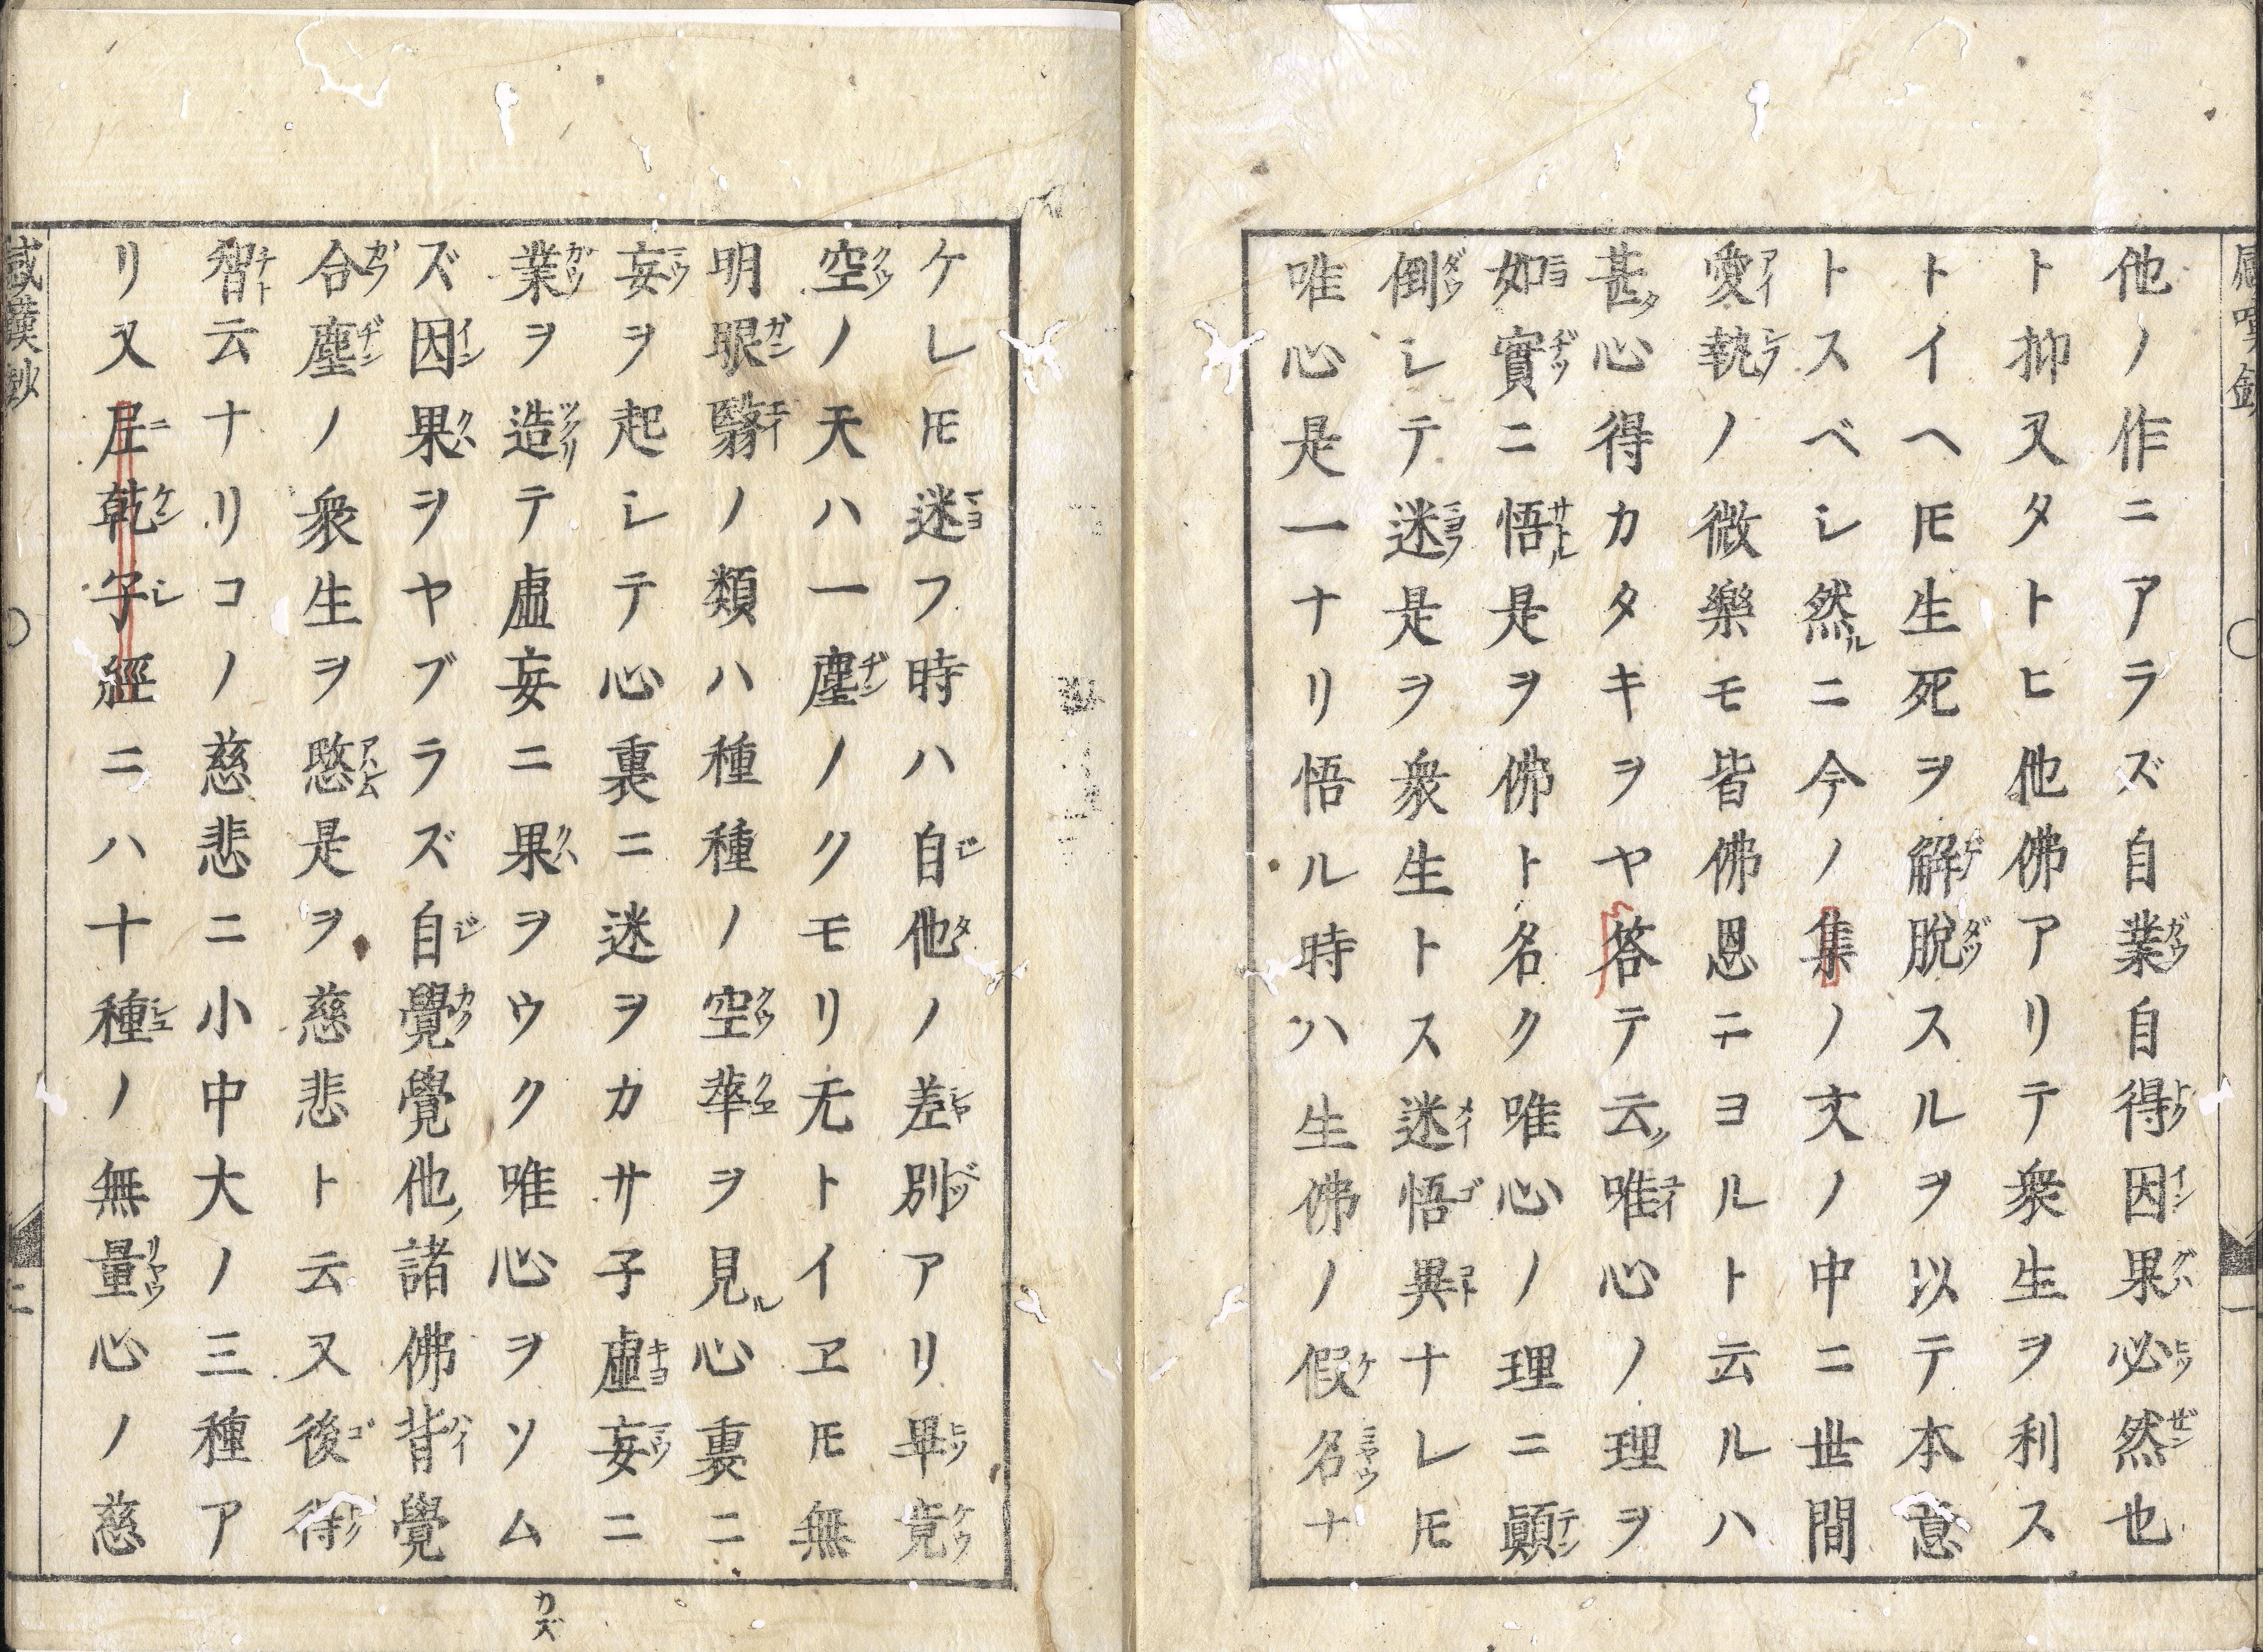 他ノ作ニアラズ自業自得因果必然也
ト抑又タトヒ他佛アリテ衆生ヲ利ス
トイヘ𪜈生死ヲ解脫スルヲ以テ本意
トスベシ然ルニ今ノ集ノ文ノ中ニ世間
愛執ノ微樂モ皆佛恩ニヨルト云ルハ
甚タ心得カタキヲヤ答テ云ク唯心ノ理ヲ
如實ニ悟ル是ヲ佛ト名ク唯心ノ理ニ顚
倒シテ迷フ是ヲ衆生トス迷悟異ナレ𪜈
唯心是一ナリ悟ル時ハ生佛ノ假名ナ
ケレ𪜈迷フ時ハ自他ノ差別アリ畢竟
空ノ天ハ一塵ノクモリ无トイヱ𪜈無
明眼翳ノ類ハ種種ノ空華ヲ見ル心裏ニ
妄ヲ起シテ心裏ニ迷ヲカサ子虛妄ニ
業ヲ造リテ虛妄ニ果ヲウク唯心ヲソム
ズ因果ヲヤブラズ自覺覺他ノ諸佛背覺
合塵ノ衆生ヲ愍ム是ヲ慈悲ト云又後得
智ト云ナリコノ慈悲ニ小中大ノ三種ア
リ又尼乾子經ニハ十種ノ無量心ノ慈
カズ
二
一